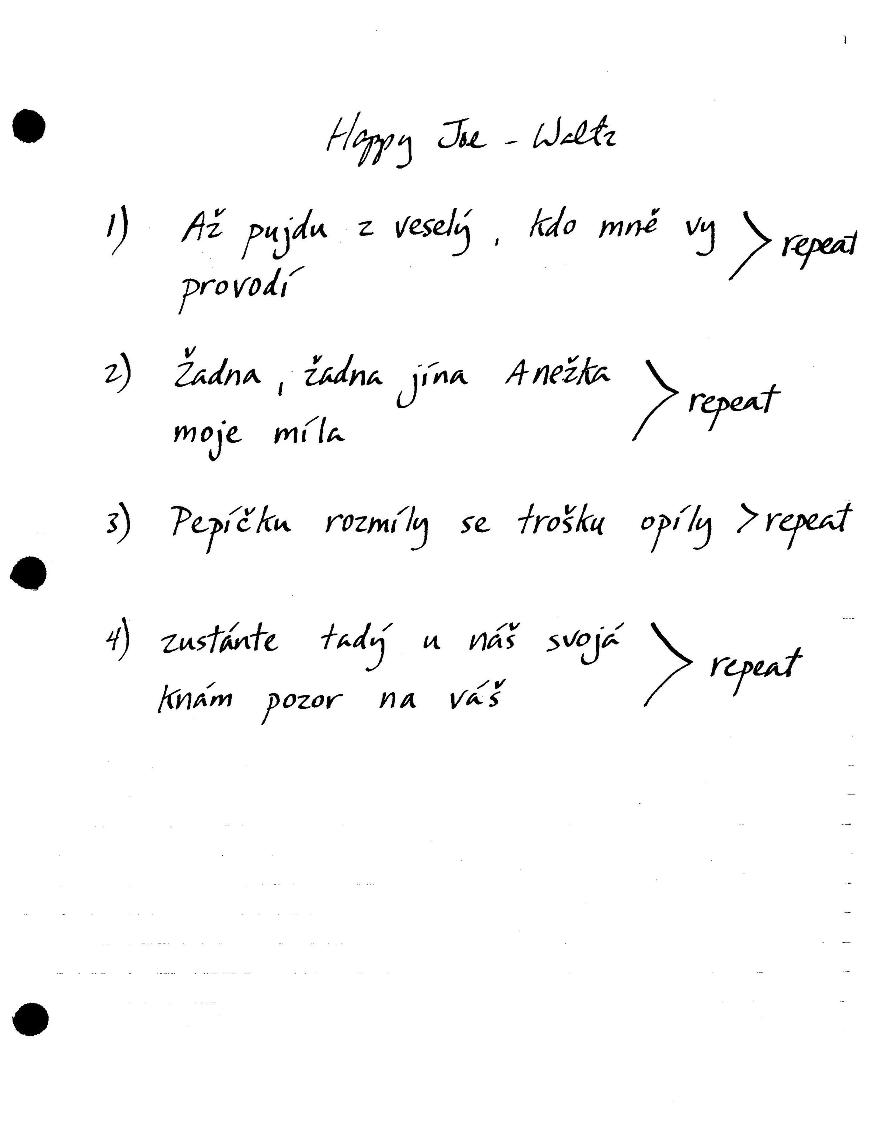 Happy Joe - Waltz
1) Až pujdu z veselý, kdo mně vy > repeat
provodí
2) Žadna, žadna jína Anežka > repeat
moje míla
3) Pepíčku rozmíly se trošku opíly > repeat
4) zustánte tadý u náš svojá > repeat
knám pozor na váš